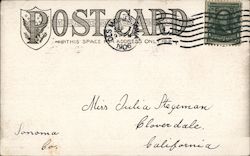 POST CARD
THIS SPACE FOR ADDRESS ONLY
1906
Miss Julia Stegeman
Cloverdale.
Sonoma
Co.
California